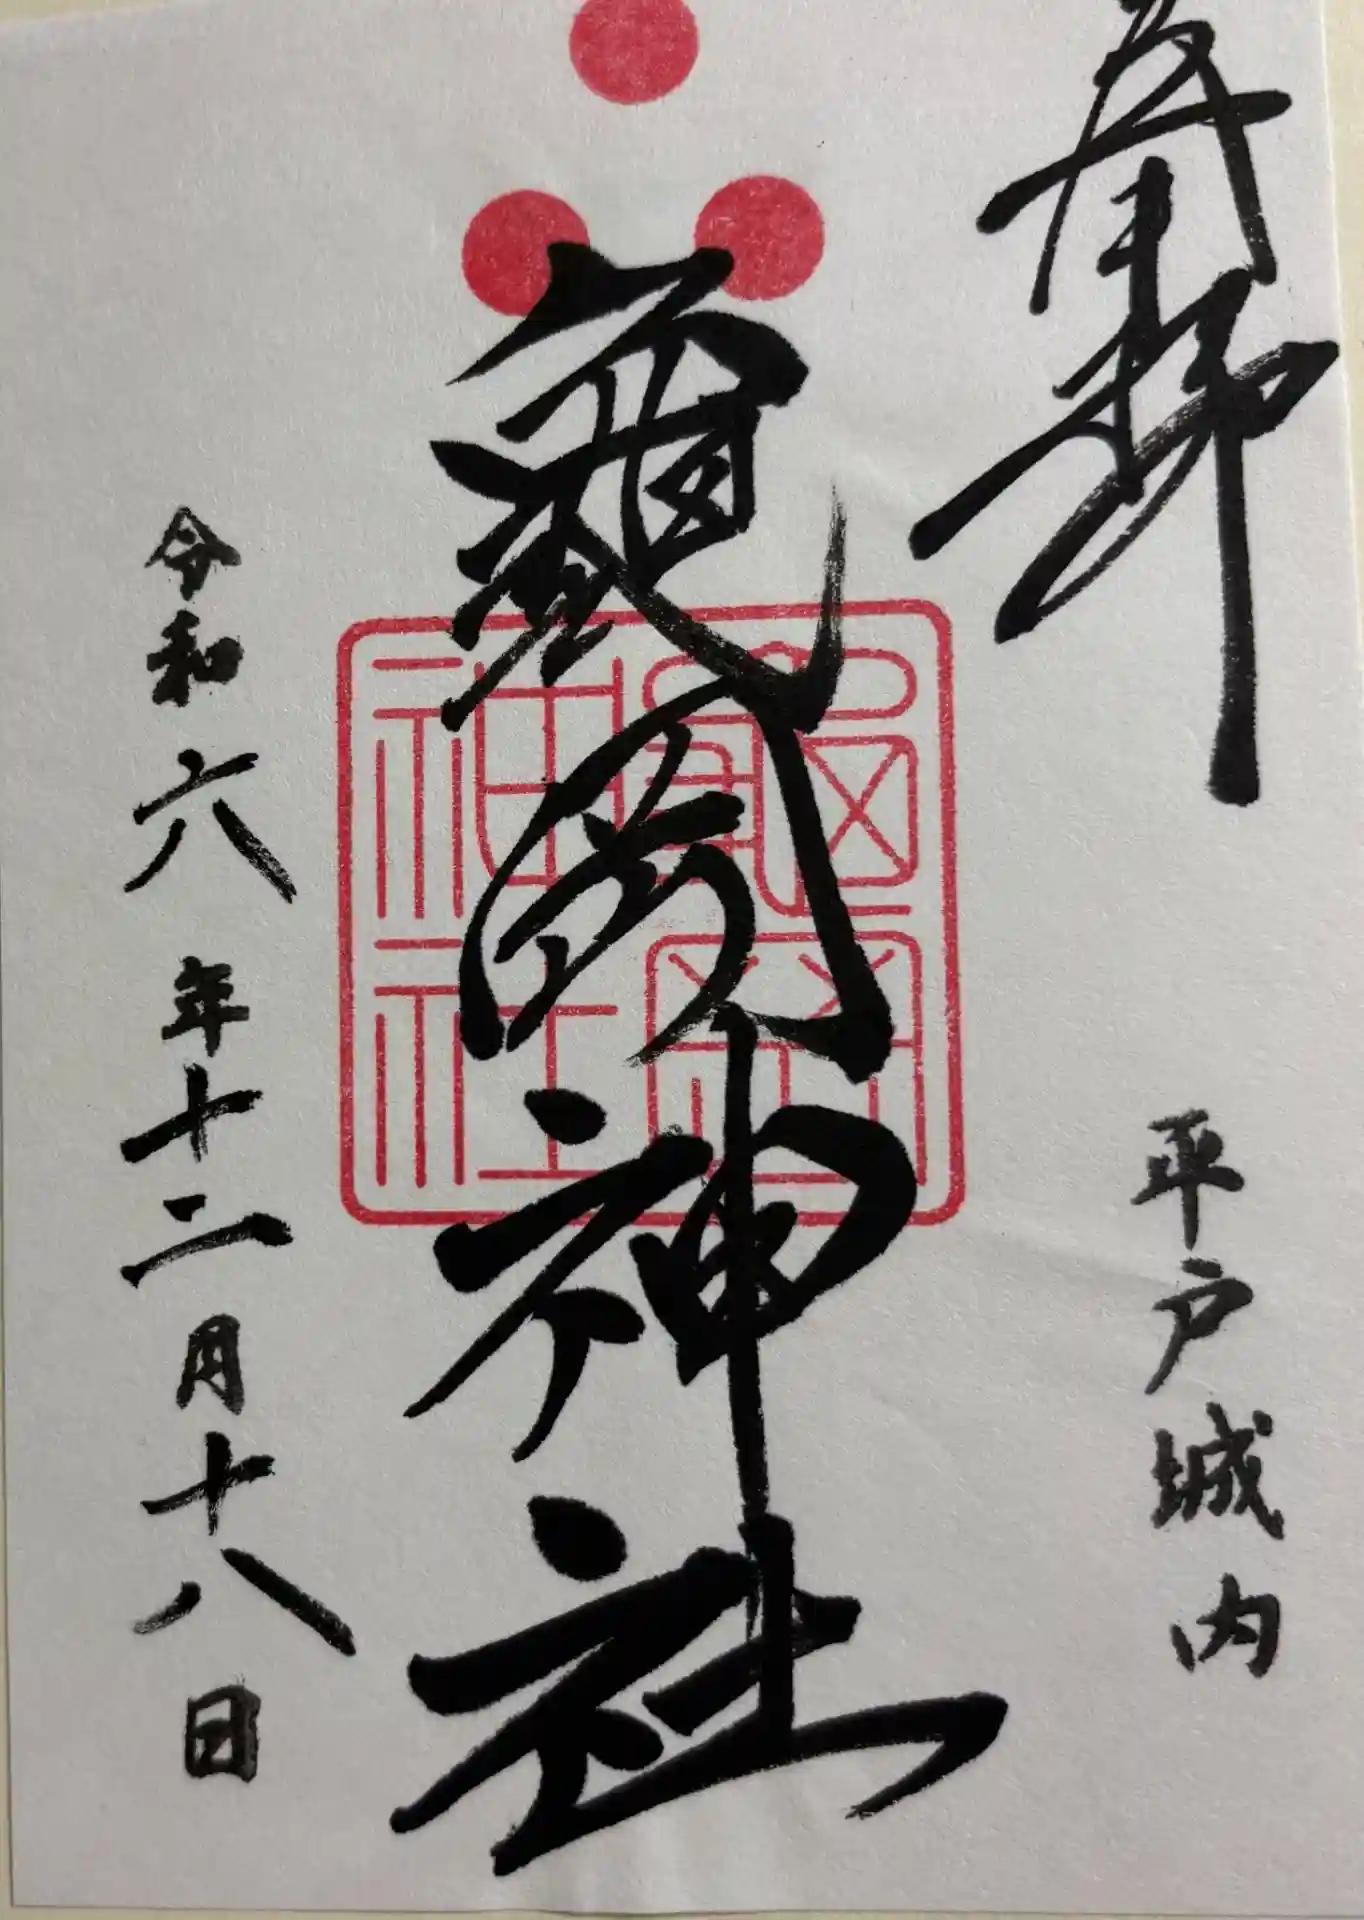 奉拝
平戸城内
龜岡神社
龜岡
神社
令和六年十二月十八日